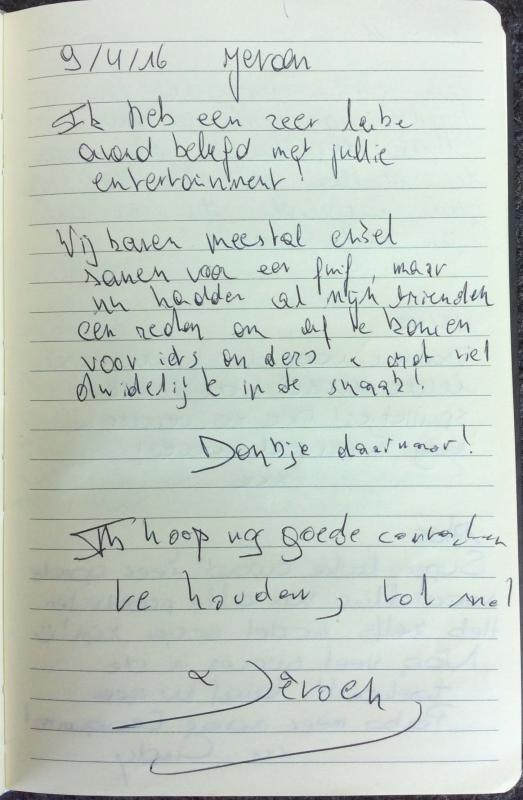 9/4/16 Jeroen
Ik heb een zeer leuke
avond beleefd met jullie
entertainment!
Wij komen meestal enkel
samen voor een fuif, maar
nu hadden al mijn vrienden
een reden om af te komen
voor iets anders & dat viel
duidelijk in de smaak!
Dankje daarvoor!
Ik hoop nog goede contacten
te houden, tot snel
Jeroen